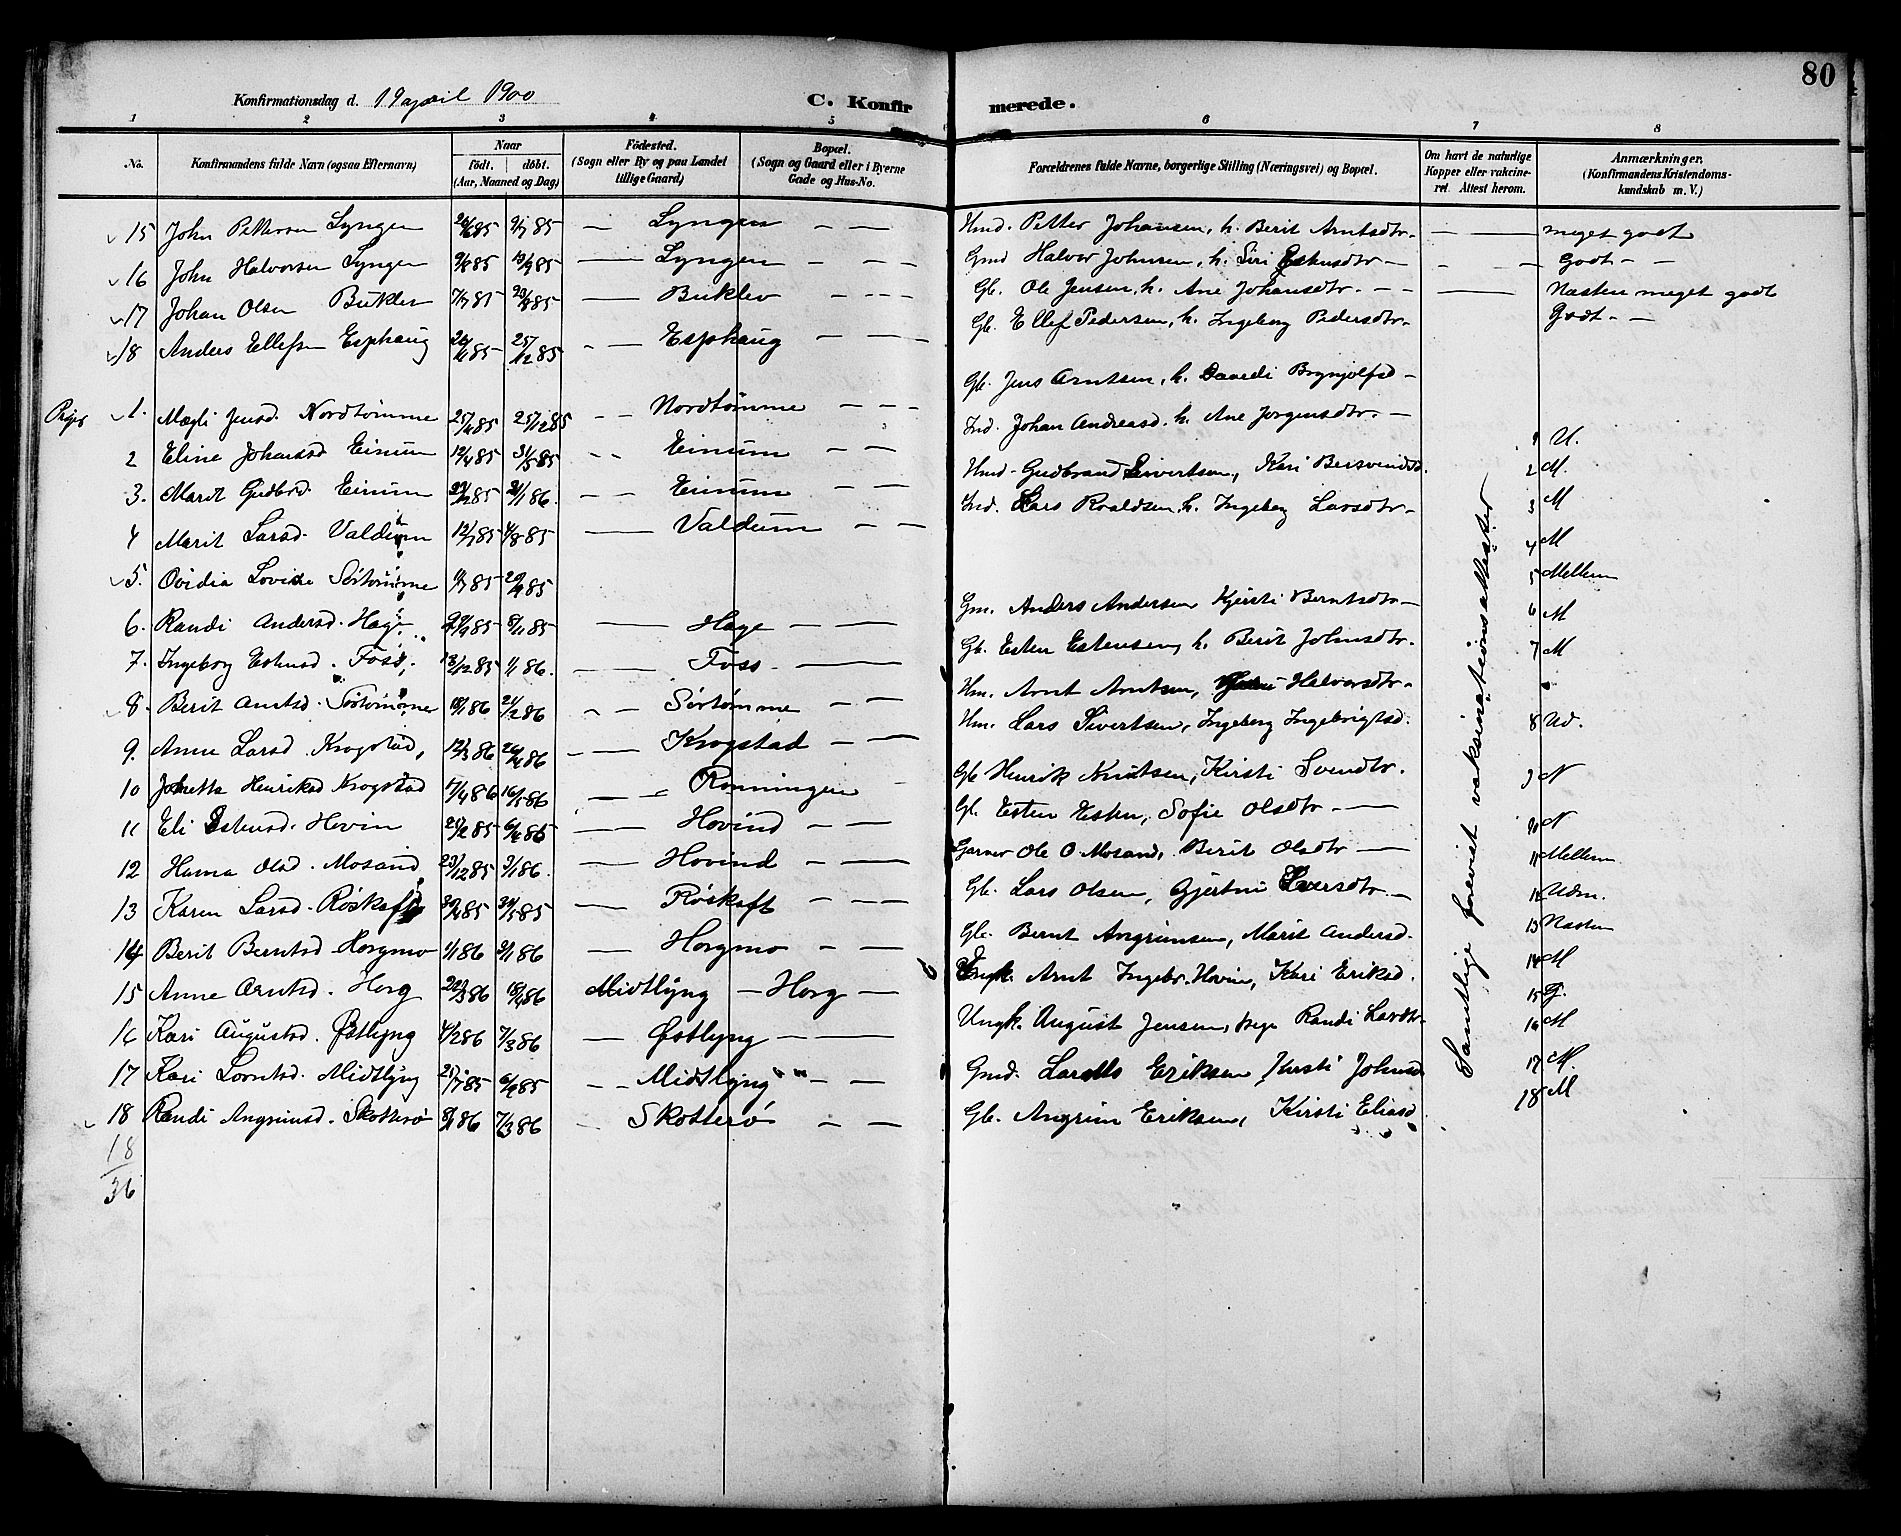 80
Konfirmationsdag d. 19 april 1900 C. Konfirmerede.
1 2 3 4 5 6 7 8
No. Konfirmandens fulde Navn (ogsaa Efternavn) Naar født. døbt. (Aar, Maaned og Dag) Födested. (Sogn eller By og paa Landet tillige Gaard) Bopæl. (Sogn og Gaard eller i Byerne Gade og Hus-No. Forældrenes fulde Navne, borgerlige Stilling (Næringsvei) og Bopæl. Om havt de naturlige Kopper eller vakcineret. Attest herom. Anmærkninger. (Konfirmandens Kristendomskundskab m. V.)
15 John Pettersen Lyngen 26/6 85 9/7 85 — Lyngen — — Hmd. Petter Johansen, h. Berit Arntsdtr. — — meget godt
16 John Halvorsen Lyngen 9/8 85 13/9 85 — Lyngen — — Gmd Halvor Johnsen, h. Siri Estensdtr — — Godt — —
17 Johan Olsen Buklev 7/7 85 23/8 85 — Buklev — — Gb. Ole Jensen, h. Ane Johansdtr. — — Næsten meget godt
18 Anders Ellefsen Esphaug 85 25/12 85 — Esphaug — — Gb. Ellef Pedersen, h. Ingeborg Pedersdtr — Godt — —
Piger 1. Magli Jensd. Nordtømme 25/11 85 25/12 85 — Nordtømme — — Gb. Jens Arntsen, h. Brynjolfsd — 1 U.
2 Eline Johansd Einum 12/4 85 31/5 85 — Einum — — Ind. Johan Andreasd. h. Ane Jørgensdtr. — 2 M.
3. Marit Gudbrd. Einum 85 86. — Einum — — Hmd. Gudbrand Sivertsen, Kari 3 M
4 Marit Larsd. Valdum 12/7 85 4/8 85 — Valdum — — Ind. Lars Roaldsen, h. Ingeborg Larsdtr — 4 M
5. Ovidia Lovise Sørtømme 85 85 5 Mellem
6. Randi Andersd. Hage 85 8/11 85 — Hage — Gm. Anders Andersen Kjersti Berntsdtr — 6 M
7. Ingeborg Estensd. Foss, 13/12 85 1/1 86. — Foss — Gb. Esten Estensen, h. Berit Johnsdtr. 7 M
8. Berit Arntsd. Sørtømme 18/1 86 21/2 86 — Sørtømme — — Hm. Arnt Arntsen, Halvorsdtr —
9. Anne Larsd Krogstad, 12/3 86 26/4 86 — Krogstad — Hm. Lars Sivertsen, Ingeborg Ingebrigtsd. 8 Ud.
10 Johetta Henriksd Krogstad 17/4 86 16/5 86 — Rønningen — Gb Henrik Knutsen, Kirsti Svendtr. 9 N
11 Eli Estensd. Hovin 85 85 — Hovind — — Gl. Esten Esten, Sofie Olsdtr — 10 N
12 Hanna Olsd. Mosand 23/12 85 3/1 86. — Hovind — Garver Ole O. Mosand, Berit Olsdtr — 11 Mellem
13 Karen Larsd. Røskaft 85 85 — Røskaft — — Gb. Lars Olsen, Gjertru Larsdtr — 12 Udm.
14 Berit Berntsd Horgmo 1/1 86 3/1 86 — Horgmo — — Gb. Bernt Angrimsen, Marit Andersd. 13 Næsten
15 Anne Arntsd. Horg 86 18/4 86 Midtlyng — Horg — Ungk. Arnt Ingebr. Hovin, Kari Eriksd. 14 M
16 Kari Augustsd. Østlyng 4/2 86 7/3 86 — Østlyng — — Ungk. August Jensen, pige Randi Larsdtr. 15 G.
16 M
17 Kari Lorntsd. Midtlyng 21/7 85 6/9 85 — Midtlyng — — Gmd. Eriksen, Kirsti Johnsd 17 M.
18 Randi Angrimsd. Skotterø 8/1 86 7/3 86 — Skotterø — — Gb. Angrim Eriksen, Kirsti Eliasd 18 M
18
36
Samtlige forevist vaksinationsattester